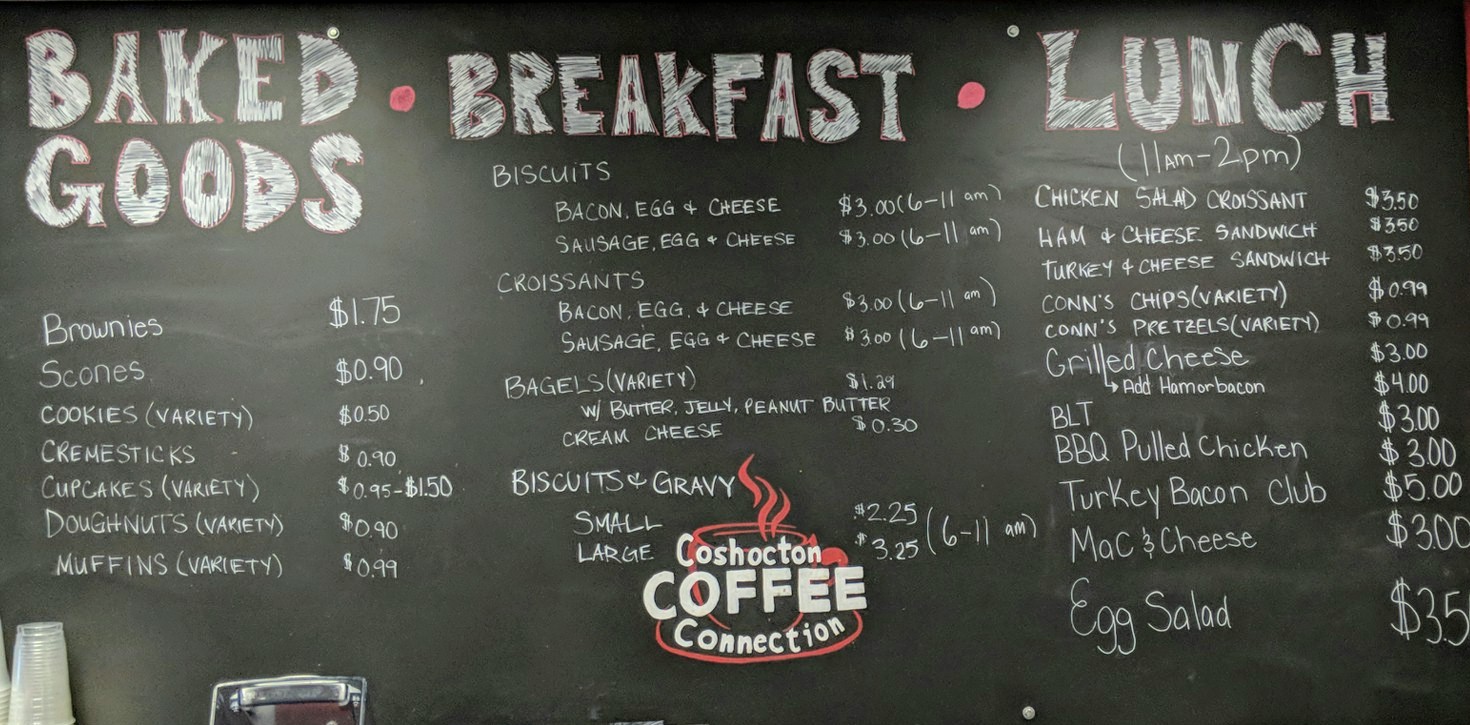 BAKED
GOODS
Brownies $1.75
Scones $0.90
COOKIES (VARIETY) $0.50
CREMESTICKS $0.90
CUPCAKES (VARIETY) $0.95-$1.50
DOUGHNUTS (VARIETY) $0.90
MUFFINS (VARIETY) $0.99
BREAKFAST
BISCUITS
BACON, EGG & CHEESE $3.00 (6-11 am)
SAUSAGE, EGG & CHEESE $3.00 (6-11 am)
CROISSANTS
BACON, EGG, & CHEESE $3.00 (6-11 am)
SAUSAGE, EGG & CHEESE $3.00 (6-11 am)
BAGELS (VARIETY) $1.29
W/ BUTTER, JELLY, PEANUT BUTTER
CREAM CHEESE $0.30
BISCUITS & GRAVY
SMALL $2.25
LARGE $3.25 (6-11 am)
Coshocton
COFFEE
Connection
LUNCH
(11AM-2pm)
CHICKEN SALAD CROISSANT $3.50
HAM & CHEESE SANDWICH $3.50
TURKEY & CHEESE SANDWICH $3.50
CONN'S CHIPS (VARIETY) $0.99
CONN'S PRETZELS (VARIETY) $0.99
Grilled Cheese $3.00
Add Ham or bacon $4.00
BLT $3.00
BBQ Pulled Chicken $3.00
Turkey Bacon Club $5.00
Mac & Cheese $3.00
Egg Salad $3.5